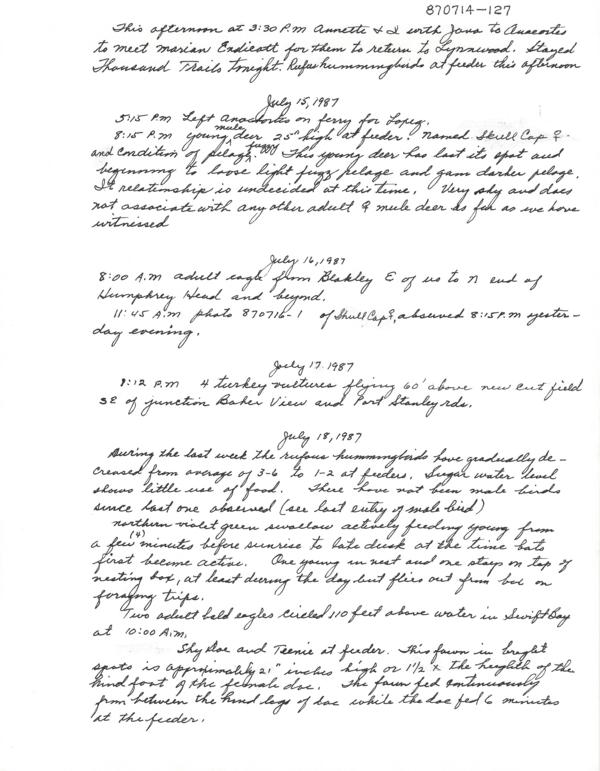 870714-127
This afternoon at 3:30 P.M Annette & I with Java to Anacortes
to meet Marian Endicott for them to return to Lynnwood. Stayed
Thousand Trails tonight. Rufus hummingbirds at feeder this afternoon
July 15, 1987
5:15 P.M Left Anacortes on ferry for Lopez.
8:15 P.M young mule deer 25" high at feeder. Named Skull Cap ♀.
and condition of fuzzy pelage. This young deer has lost its spot and
beginning to loose light fuzz pelage and gain darker pelage.
It relationship is undecided at this time. Very shy and does
not associate with any other adult ♀ mule deer as far as we have
witnessed
July 16, 1987
8:00 A.M adult eagle from Blakley E of us to N end of
Humphrey Head and beyond.
11:45 A.M photo 870716-1 of Skull Cap ♀, observed 8:15 P.M yester-
day evening.
July 17. 1987
1:12 P.M 4 turkey vultures flying 60' above new cut field
SE of junction Baker View and Port Stanley rds.
July 18, 1987
During the last week the rufous hummingbirds have gradually de-
creased from average of 3-6 to 1-2 at feeders. Sugar water level
shows little use of food. There have not been male birds
since last one observed (see last entry of male bird)
northern violet green swallow actively feeding young from
a few (4) minutes before sunrise to late dusk at the time bats
first become active. One young in nest and one stays on top of
nesting box, at least during the day but flies out from box on
foraging trips.
Two adult bald eagles circled 110 feet above water in Swift Bay
at 10:00 A.M.
Shy Doe and Teenie at feeder. This fawn in bright
spots is approximately 21" inches high or 1 1/2 x the heighth of the
hind foot of the female doe. The fawn fed continuously
from between the hind legs of doe while the doe fed 6 minutes
at the feeder.